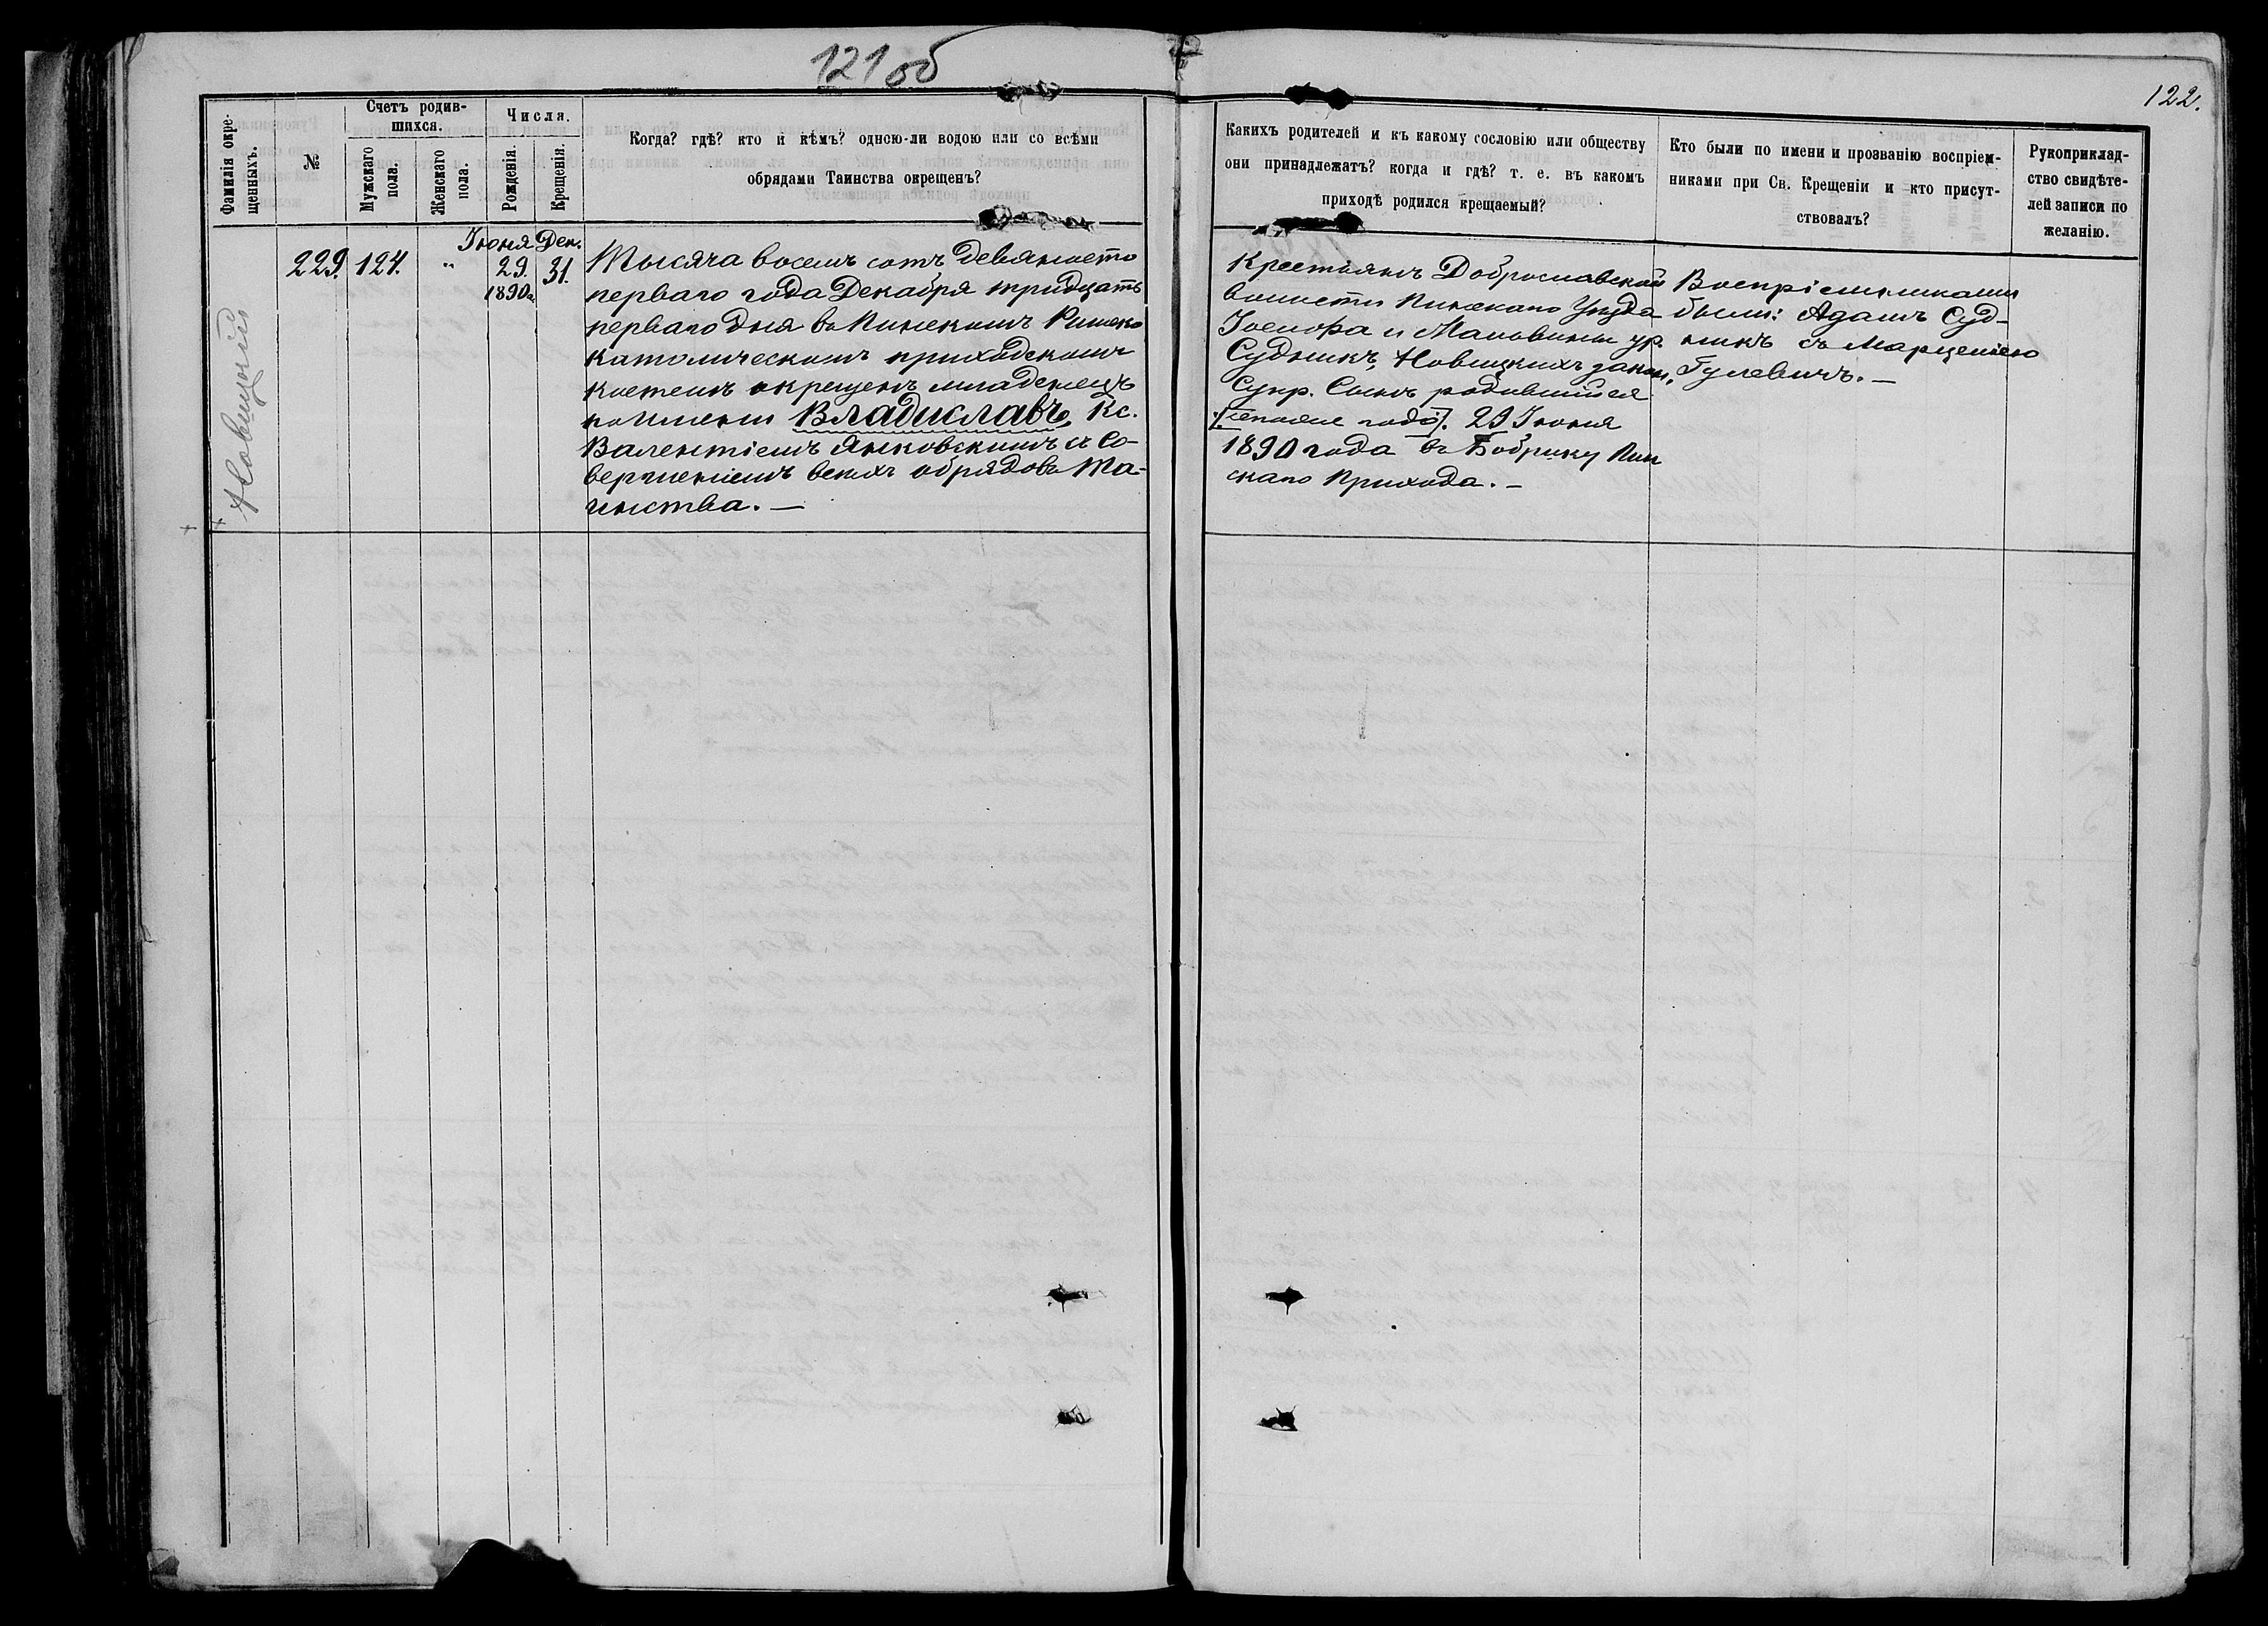 121 об
122.
Фамилія окре-
щенныхъ.
№
Счетъ родив-
шихся.
Мужскаго
пола.
Женскаго
пола.
Числа.
Рожденія.
Крещенія.
Когда? гдѣ? кто и кѣмъ? одною-ли водою или со всѣми
обрядами Таинства окрещенъ?
Какихъ родителей и къ какому сословію или обществу
они принадлежатъ? когда и гдѣ? т. е. въ какомъ
приходѣ родился крещаемый?
Кто были по имени и прозванію воспріем-
никами при Св. Крещеніи и кто присут-
ствовалъ?
Рукоприклад-
ство свидѣте-
лей записи по
желанію.
Новицкій
229. 124. "
Іюня Дек.
29. 31.
1890г.
Тысяча восемь сотъ девяносто
перваго года Декабря тридцать
перваго дня въ Пинскомъ Римско
Католическомъ приходскомъ
костелѣ окрещенъ младенецъ
по имени Владиславъ, Кс.
Валентіемъ Янковскимъ съ со-
вершеніемъ всѣхъ обрядовъ Та-
инства. —
Крестьянъ Доброславской
волости Пинскаго Уѣзда
Іосифа и Мальвины ур.
Судникъ, Новицкихъ закон.
Супр. Сынъ родившійся
года 29 Іюня
1890 года въ Бобрику Пин
скаго Прихода. —
Воспріемниками
были: Адамъ Суд-
никъ съ Марцеліею
Гулевичъ. —